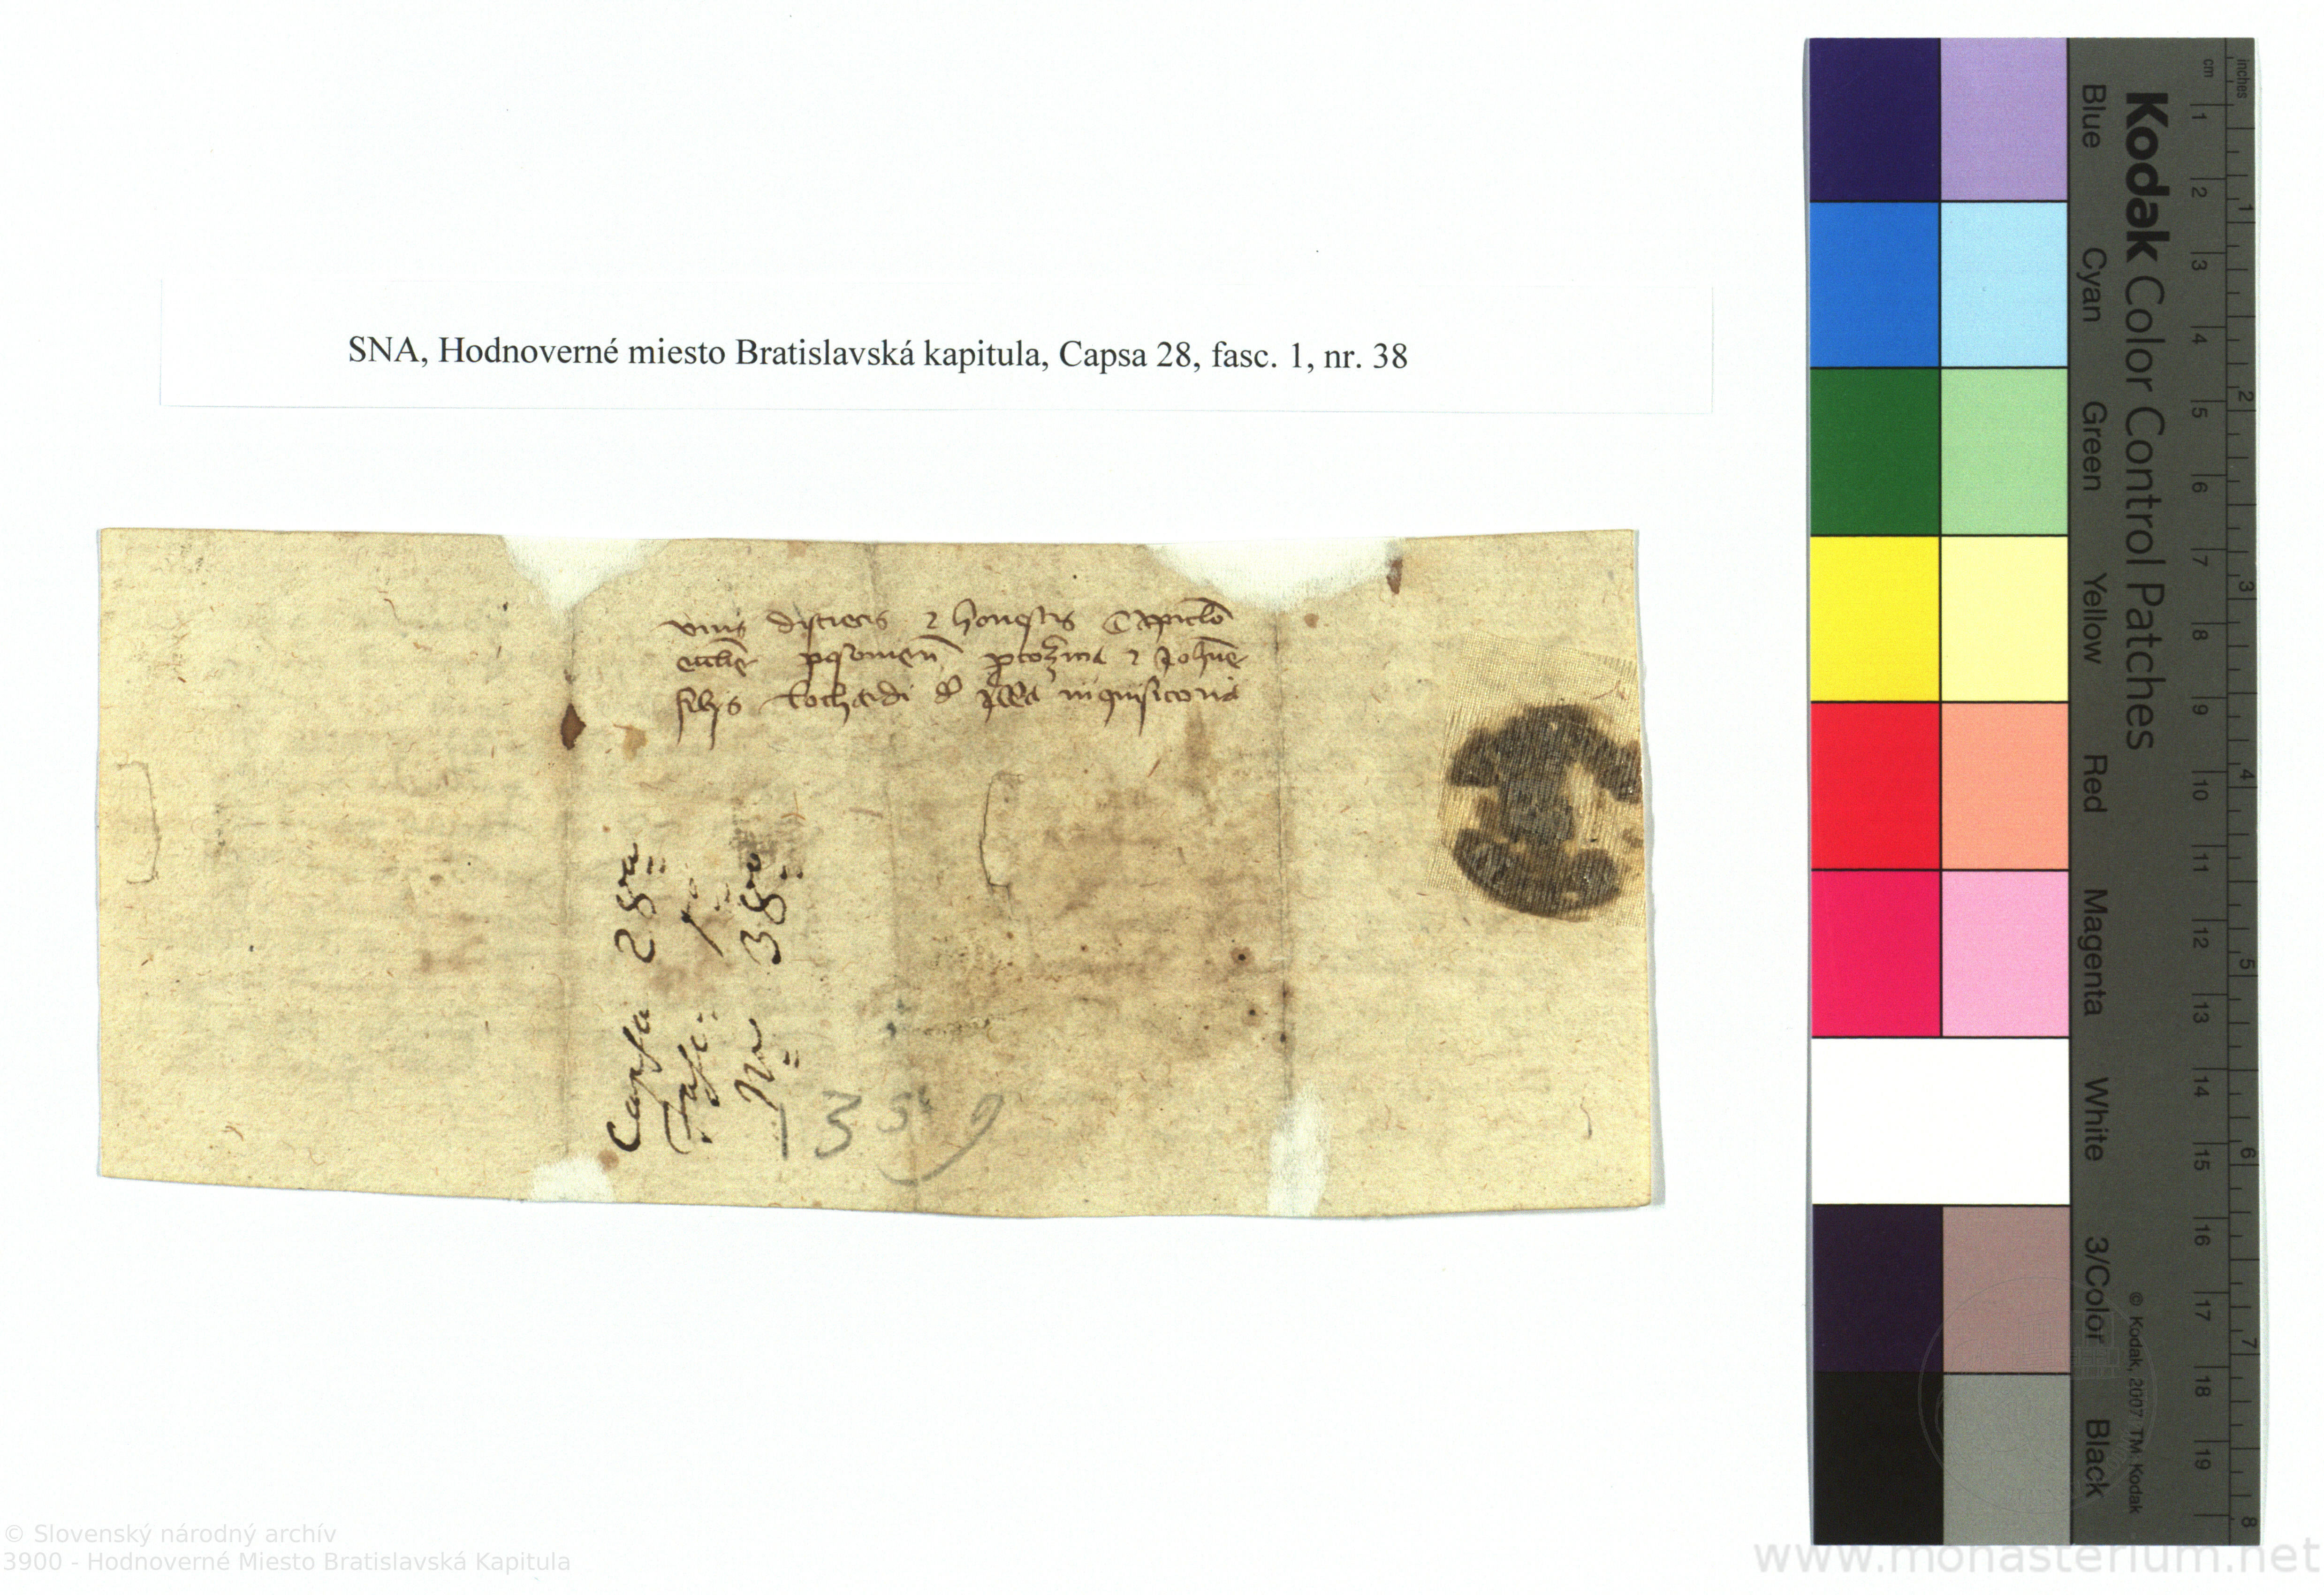 SNA, Hodnoverné miesto Bratislavská kapitula, Capsa 28, fasc. 1, nr. 38
viris discretis et honestis Capitulo
filijs inquisitoria
Capsa 28va
Fasc: 1
Nro 38vo
1359
Kodak Color Control Patches
Blue Cyan Green Yellow Red Magenta White 3/Color Black
© Kodak, 2007 TM: Kodak
cm 1 2 3 4 5 6 7 8 9 10 11 12 13 14 15 16 17 18 19
inches 1 2 3 4 5 6 7 8
© Slovenský národný archív
3900 - Hodnoverné Miesto Bratislavská Kapitula
www.monasterium.net